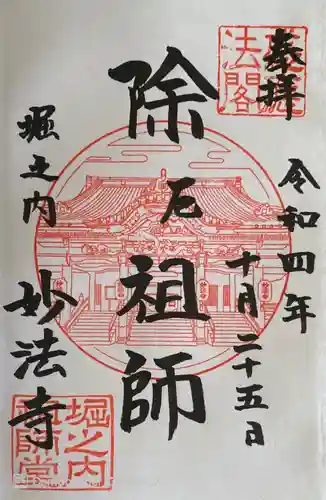 奉拝
令和四年
十月二十五日
除厄祖師
堀之内
妙法寺
堀之内
祖師堂
法閣